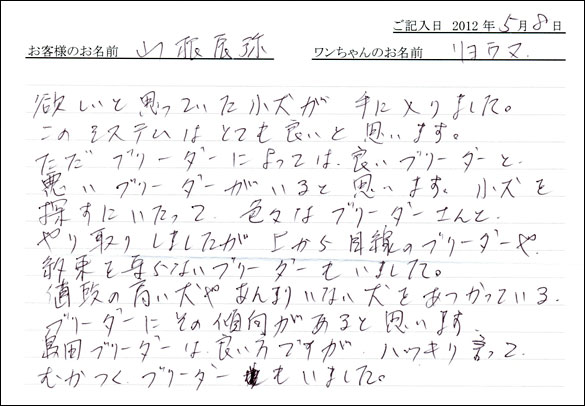 ご記入日 2012年5月8日
お客様のお名前 山根辰弥 ワンちゃんのお名前 リョウマ
欲しいと思っていた小犬が手に入りました。
このシステムはとても良いと思います。
ただブリーダーによっては、良いブリーダーと、
悪いブリーダーがいると思います。小犬を
探すにいたって、色々なブリーダーさんと、
やり取りしましたが上から目線のブリーダーや、
約束を守らないブリーダーもいました。
値段の高い犬やあんまりいない犬をあつかっている、
ブリーダーにその傾向があると思います。
島田ブリーダーは、良い方ですが、ハッキリ言って、
むかつくブリーダーもいました。